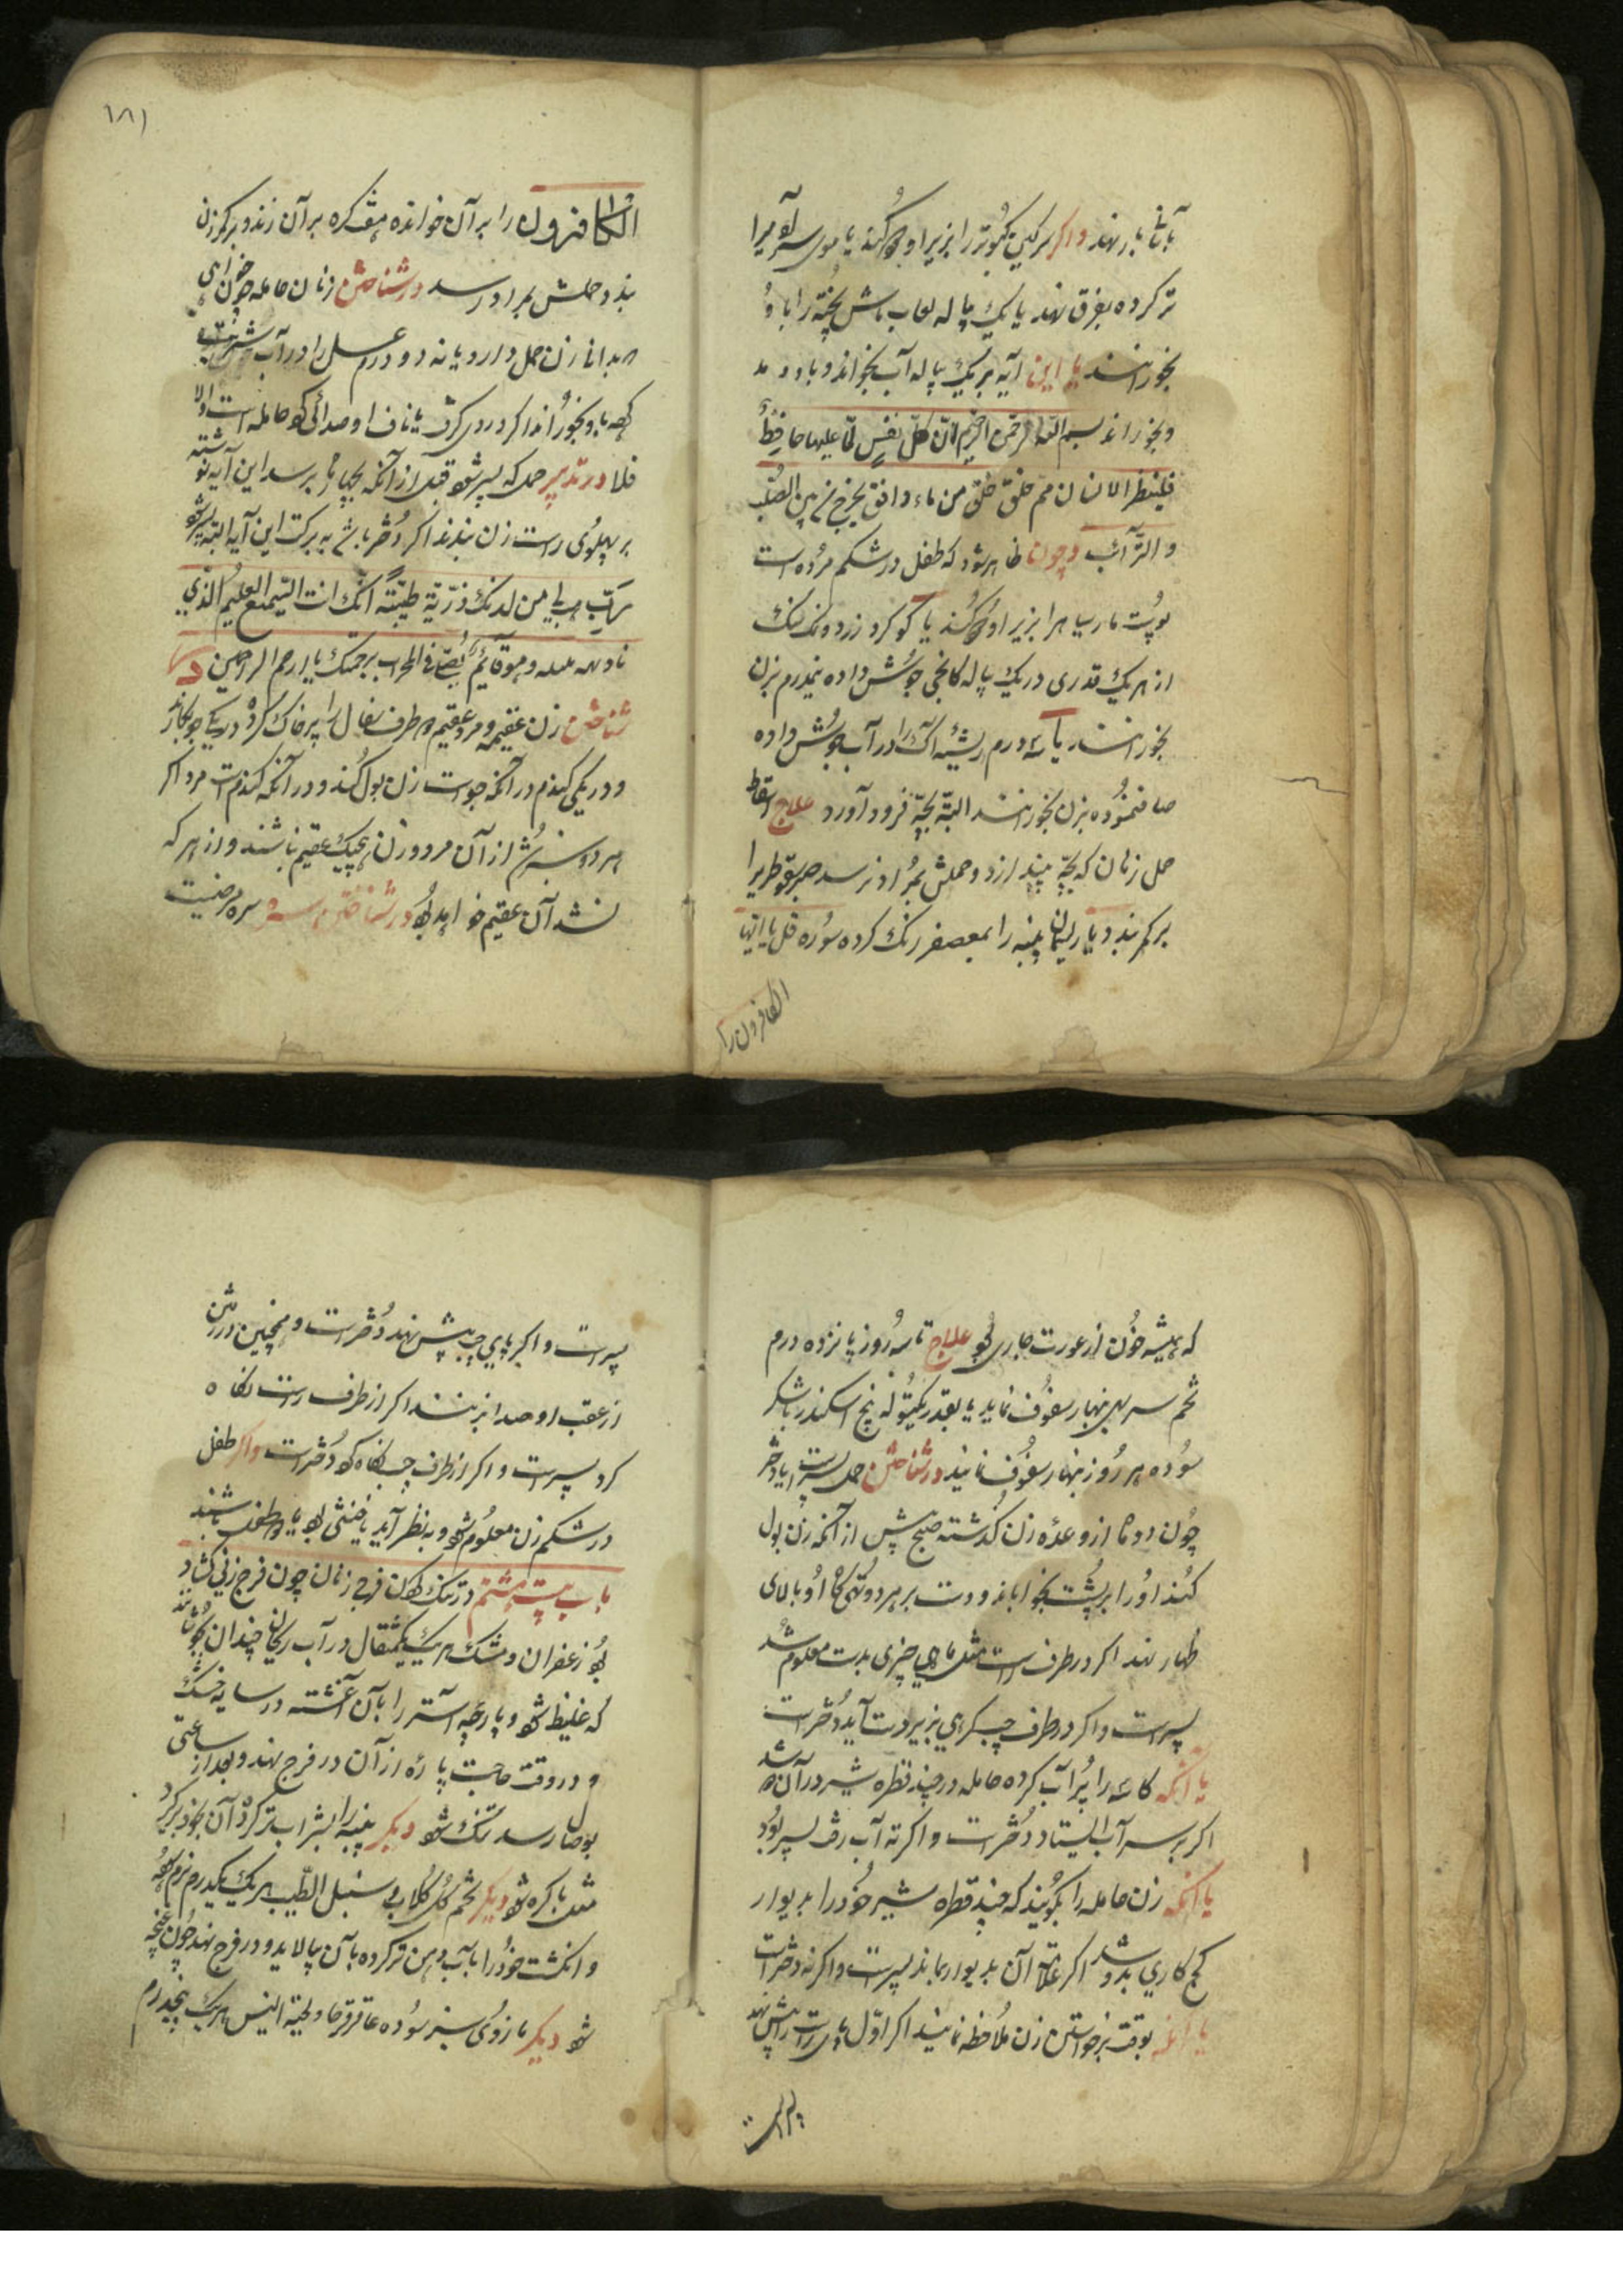 بار نهند واکر سرکین کبوتر را بزیر او بخور کنند یا موی سر آدمیرا
تر کرده بفرق نهند یا یک پیاله لعاب ماش پخته را با و
بخورانند یا این آیه بر یک پیاله آب بخواند و باو دمد
و بخوراند بسم الله الرحمن الرحیم ان کل نفس لما علیها حافظ
فلینظر الانسان مم خلق خلق من ماء دافق یخرج من بین الصلب
والترآئب وچون ظاهر شود که طفل در شکم مرده است
پوست مار سیاه را بزیر او بخور کنند یا کوکرد زرد و نمک سنک
از هر یک قدری در یک پیاله کانجی جوش داده نیمکرم بزن
بخورانند یا سه درم ریشه آک را در آب جوش داده
صاف نموده بزن بخورانند البته بچه فرود آورد علاج اسقاط
حمل زنان که بچه بیندازد و حملش بمراد نرسد صبر سقوطریرا
بر کمر بندد یا ریسمان پنبه را بمعصفر رنک کرده سوره قل یا ایها
الکافرون را
۱۸۱
الکافرون را بر آن خوانده هفت کره بر آن زند و بر کمر زن
بندد حملش بمراد رسد در شناختن زنان حامله چون خواهی
بدانی زن حمل دارد یا نه دو درم عسل را در آب شربت
کرده باو بخوراند اکر دردی کرد ناف او صدائی کرد حامله است والا
فلا در تدبیر حمل که پسر شود قبل از آنکه بچهار ماه برسد این آیه نوشته
بر پهلوی راست زن بندند اکر دختر باشد به برکت این آیه البته پسر شود
رب هب لی من لدنک ذریة طیبة انک انت السمیع العلیم الذی
نادته ملئکه وهو قائم یصلی فی المحراب برحمتک یا ارحم الراحمین در
شناختن زن عقیمه و مرد عقیم دو ظرف سفال را پر خاک کرده در یکی جو بکارند
و در یکی کندم در آنکه جو است زن بول کند و در آنکه کندم است مرد اکر
هر دو سبز شد از آن مرد و زن هیچیک عقیم نباشند و از هر که
نشد آن عقیم خواهد بود در شناختن سره مرضیست
که همیشه خون از عورت جاری بود علاج تا سه روز پانزده درم
تخم سرسبهی نهار سفوف نماید یا بقدر یکتوله بیخ اسکند را با شکر
سوده هر روز نهار سفوف نمایند در شناختن حمل پسر است یا دختر
چون دو ماه از وعده زن کذشته صبح پیش از آنکه زن بول
کند او را بر پشت بخواباند و دست بر هر دو تهیکاه او بالای
نهار نهند اکر در طرف راست مثل ماهی چیزی بدست معلوم شد
پسر است و اکر در طرف چپ کرهی بزیر دست آید دختر است
یا آنکه کاسه را پر آب کرده حامله در چند قطره شیر در آن دوشد
اکر بر سر آب ایستاد دختر است و اکر ته آب رفت پسر بود
یا آنکه زن حامله را بکویند که چند قطره شیر خود را بدیوار
کچ کاری بدوشد اکر علامت آن بدیوار بماند پسر است و اکر نه دختر است
یا آنکه بوقت برخواستن زن ملاحظه نمایند اکر اول پای راست را پیش نهد
پسر است
پسر است و اکر پای چپ پیش نهد دختر است و همچنین در رفتن
از عقب او صدا بزنند اکر از طرف راست نکاه
کرد پسر است و اکر از طرف چپ نکاه کرد دختر است واکر طفل
در شکم زن معلوم شود و به نظر آید یا خنثی بود یا دو طفل باشند
باب بیست هشتم در تنک کردن فرج زنان چون فرج زنی کشاد
بود زعفران و مشک هر یک یکمثقال در آب ریحان چندان بجوشانند
که غلیظ شود و پارچه آستر را بآن آغشته در سایه خشک
و در وقت حاجت پاره از آن در فرج نهند و بعد از ساعتی
بوصال رسد تنک شود دیکر پنبه را بشراب تر کرده آن بخود بر کیرد
مثل باکره شود دیکر تخم کل کلاب و سنبل الطیب هر یک یکدرم نرم سوده
و انکشت خود را بآب دهن تر کرده بآن بیالاید و در فرج نهد چون غنچه
شود دیکر مازوی سبز سوده عاقرقرحا و لحیة التیس هر یک پنجدرم